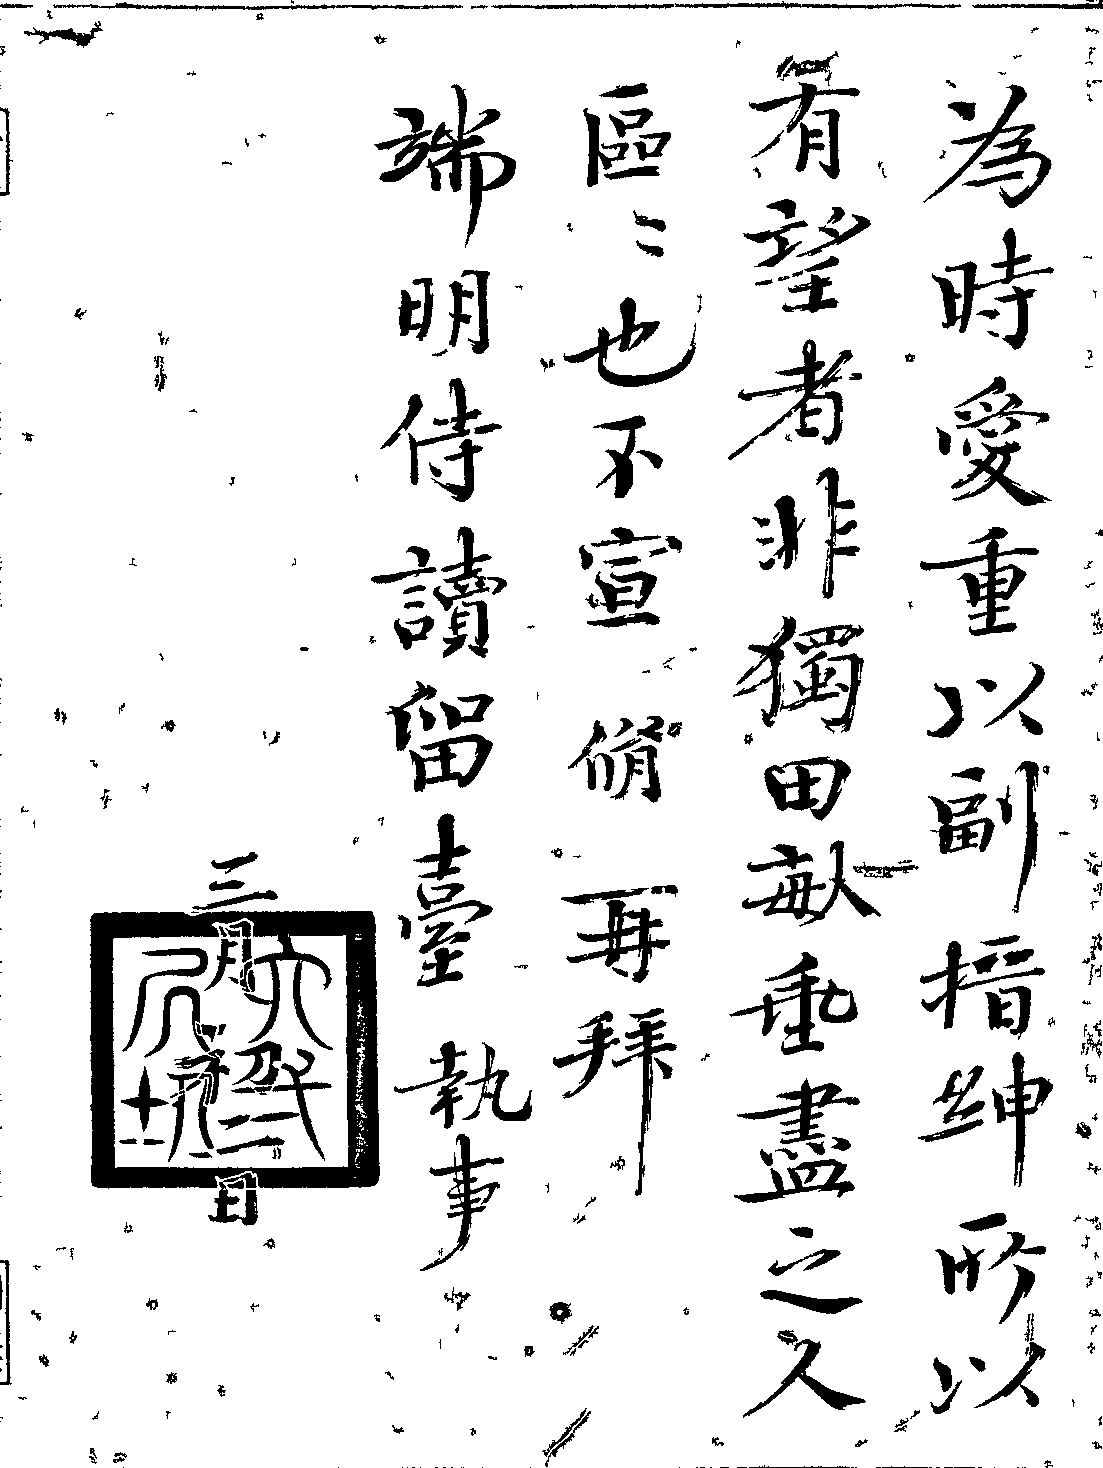 為時愛重以副搢紳所以
有望者非獨田畝垂盡之人
區〻也不宣 脩 再拜
端明侍讀留臺 執事
三月初二日